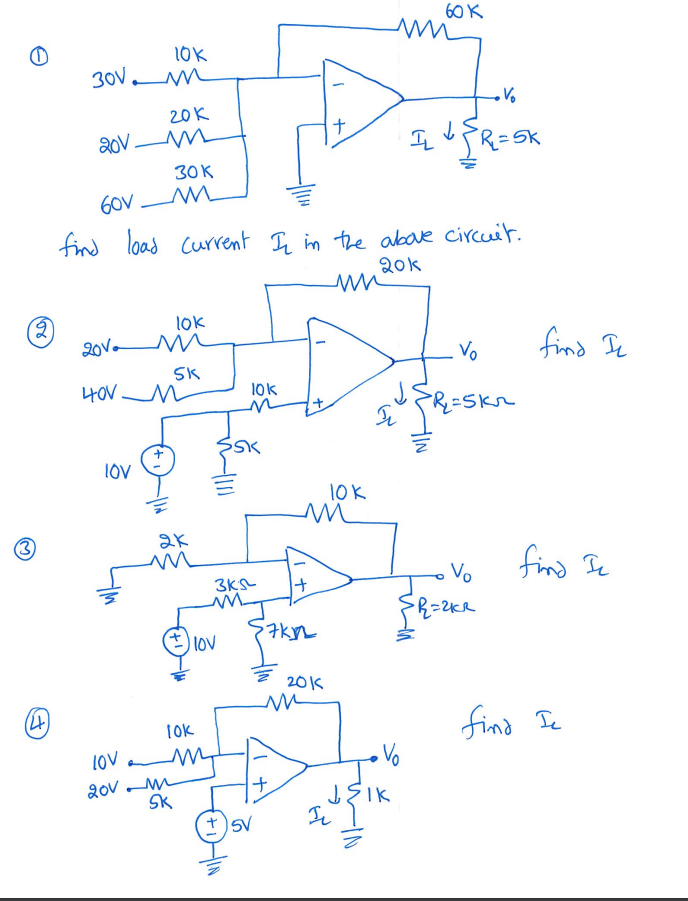 60K
①
10K
30V
-
V₀
20K
20V
+
I_L ↓ R_L=5K
30K
60V
find load current I_L in the above circuit.
20K
②
10K
20V
-
V₀
find I_L
5K
40V
10K
+
I_L ↓ R_L=5KΩ
5K
+
-
10V
10K
③
2K
-
V₀
find I_L
3KΩ
+
R_L=2KΩ
+
-
10V
7kΩ
20K
④
10K
find I_L
10V
-
V₀
20V
+
5K
I_L ↓ 1K
+
-
5V